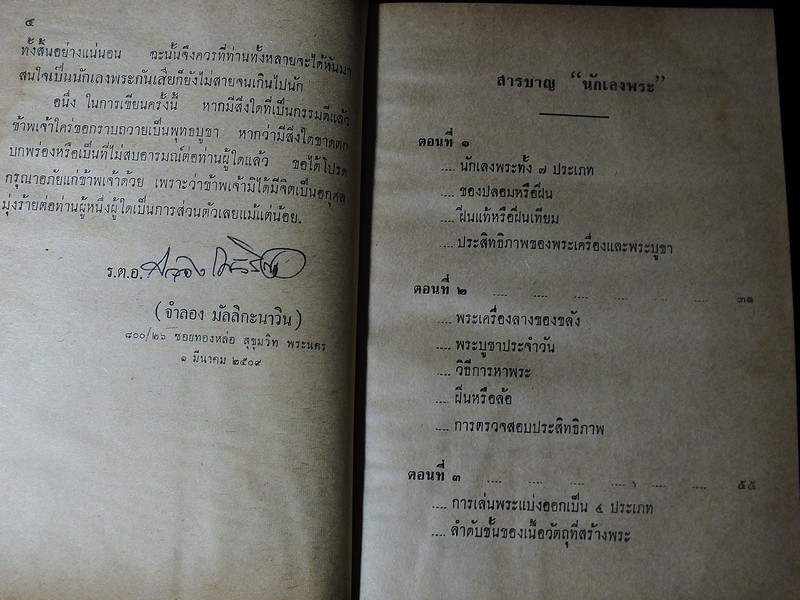 ๔
ทั้งสิ้นอย่างแน่นอน ฉะนั้นจึงควรที่ท่านทั้งหลายจะได้หันมา
สนใจเป็นนักเลงพระกันเสียก็ยังไม่สายจนเกินไปนัก
อนึ่ง ในการเขียนครั้งนี้ หากมีสิ่งใดที่เป็นกรรมดีแล้ว
ข้าพเจ้าใคร่ขอกราบถวายเป็นพุทธบูชา หากว่ามีสิ่งใดขาดตก
บกพร่องหรือเป็นที่ไม่สบอารมณ์ต่อท่านผู้ใดแล้ว ขอได้โปรด
กรุณาอภัยแก่ข้าพเจ้าด้วย เพราะว่าข้าพเจ้ามิได้มีจิตเป็นอกุศล
มุ่งร้ายต่อท่านผู้หนึ่งผู้ใดเป็นการส่วนตัวเลยแม้แต่น้อย.
ร.ต.อ.
(จำลอง มัลลิกะนาวิน)
๘๐๐/๒๖ ซอยทองหล่อ สุขุมวิท พระนคร
๑ มีนาคม ๒๕๐๙
สารบาญ “นักเลงพระ”
ตอนที่ ๑
.... นักเลงพระทั้ง ๗ ประเภท
.... ของปลอมหรือฝีน
.... ฝีนแท้หรือฝีนเทียม
.... ประสิทธิภาพของพระเครื่องและพระบูชา
ตอนที่ ๒ .... .... .... .... .... .... .... ๓๑
.... พระเครื่องลางของขลัง
.... พระบูชาประจำวัน
.... วิธีการหาพระ
.... ฝีนหรือล้อ
.... การตรวจสอบประสิทธิภาพ
ตอนที่ ๓ .... .... .... .... .... .... ๕๕
.... การเล่นพระแบ่งออกเป็น ๔ ประเภท
.... ลำดับชั้นของเนื้อวัตถุที่สร้างพระ